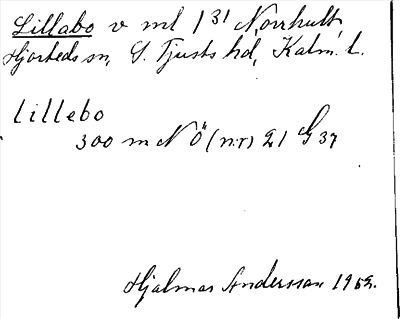 Lillabo v ml 1 31 Norrhult,
Hjorteds sn, S. Tjusts hd, Kalm. l.
Lillebo
300 m NÖ (nr) 21 G 37
Hjalmar Andersson 1952.